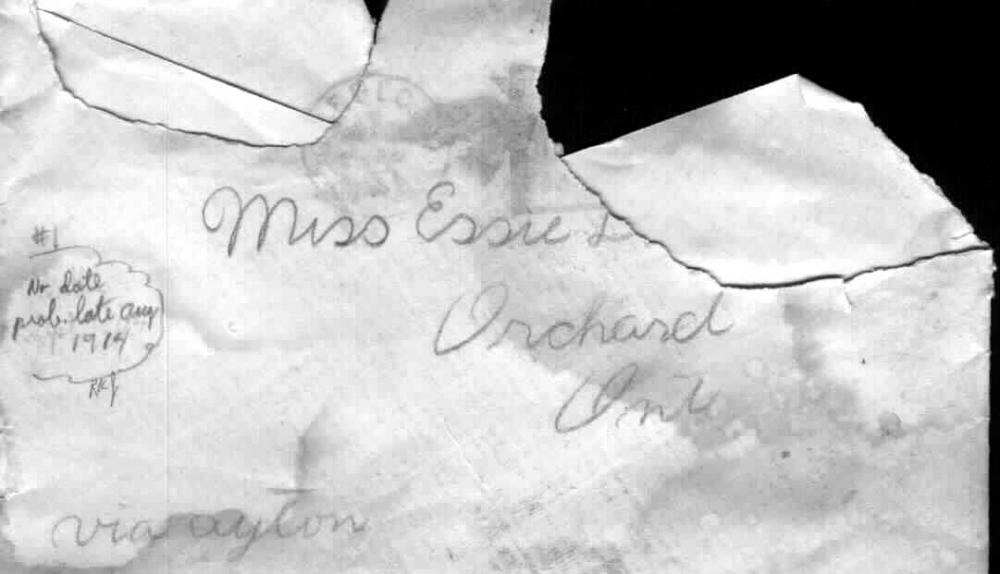 Miss Essie
Orchard
Ont
via ayton
#1
No date
prob. late aug
1914
RKJ